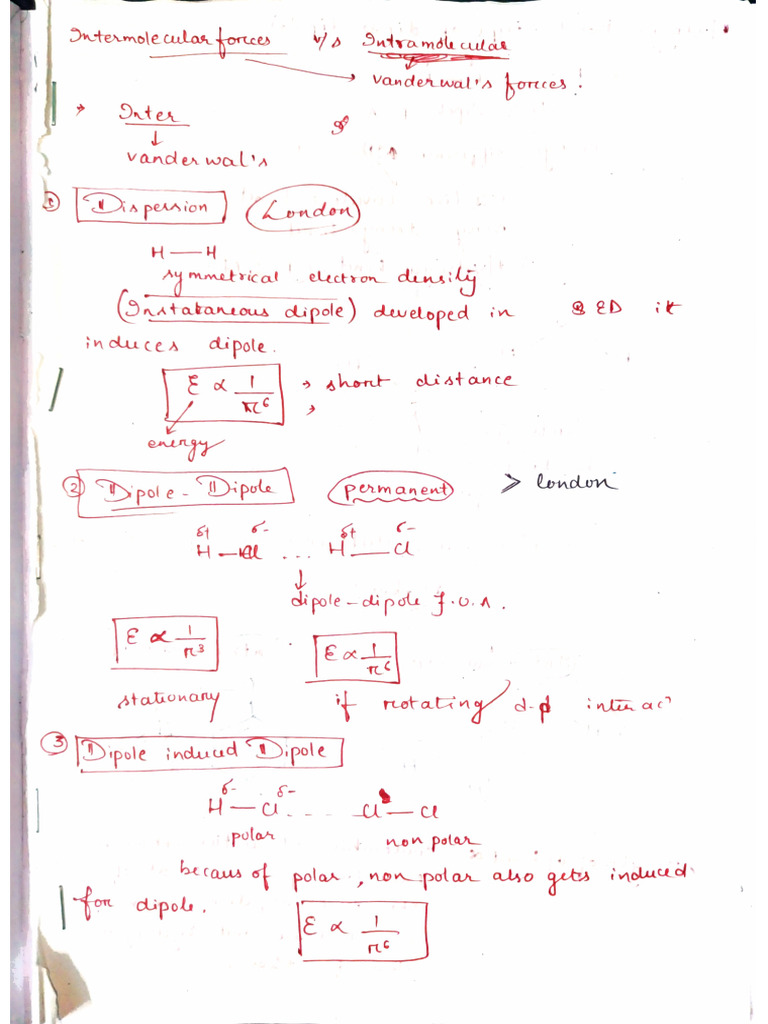 Intermolecular forces v/s Intramolecular
vanderwal's forces.
→ Inter
↓
vanderwal's
① Dispersion London
H — H
symmetrical electron density
(Instataneous dipole) developed in ED it
induces dipole.
E ∝ 1/r⁶ → short distance
energy
② Dipole - Dipole permanent > london
δ+ δ- δ+ δ-
H — Cl ... H — Cl
↓
dipole - dipole f.o.A.
E ∝ 1/r³ E ∝ 1/r⁶
stationary if rotating d-d interac
③ Dipole induced Dipole
δ- δ-
H — Cl ... Cl — Cl
polar non polar
becaus of polar, non polar also gets induced
for dipole.
E ∝ 1/r⁶